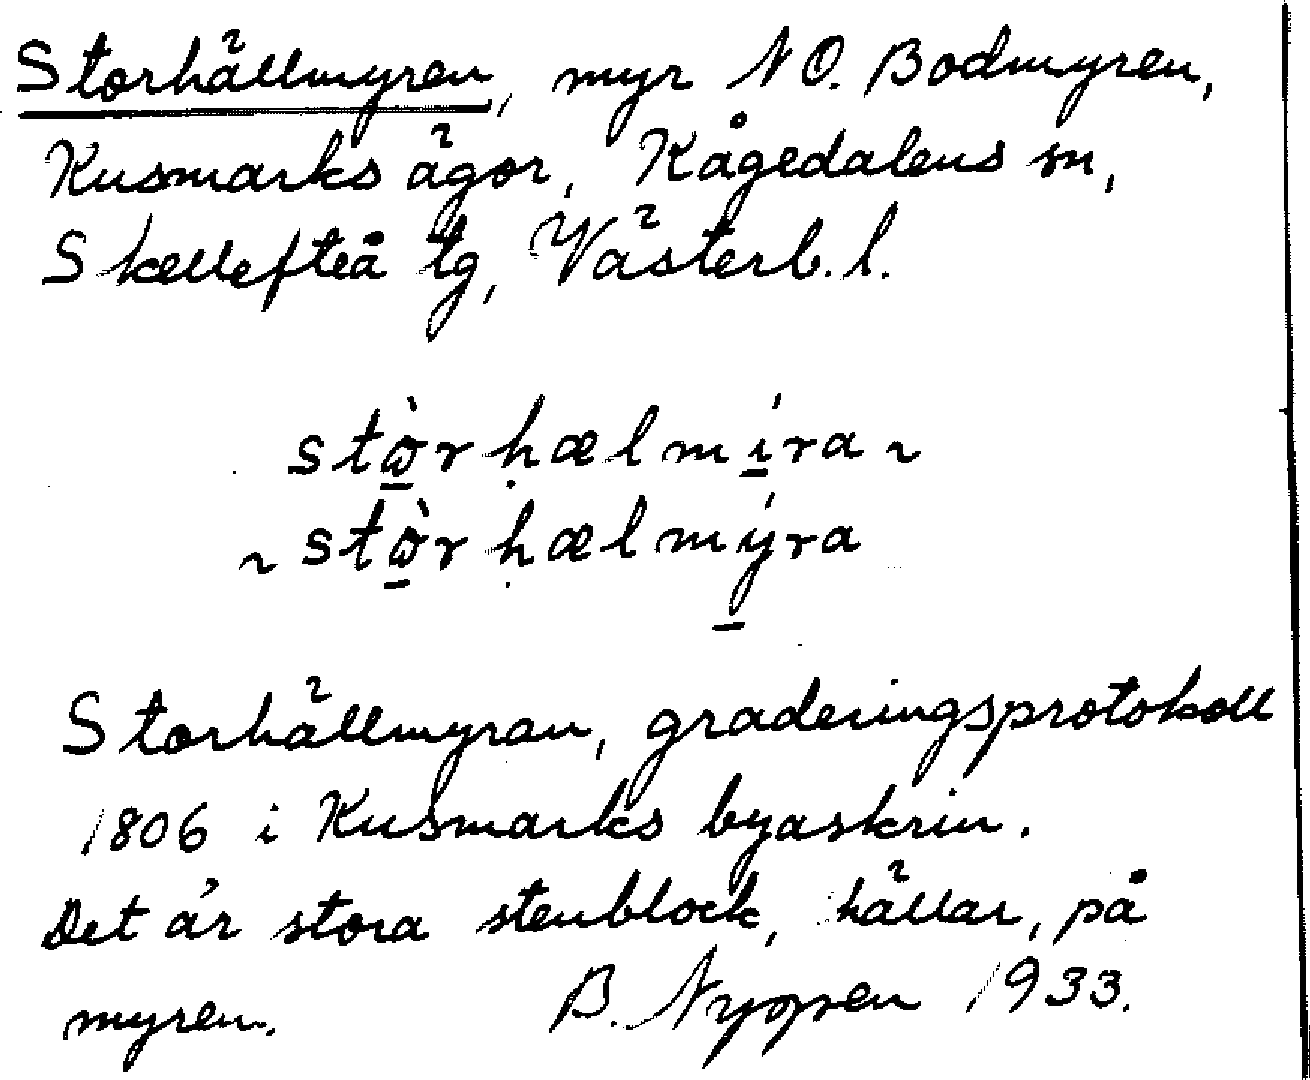 Storhällmyren, myr N O. Bodmyren,
Kusmarks ägor, Kågedalens sn,
Skellefteå tg, Västerb. l.
stò̱rḥælmí̱ra ~
~ stò̱rḥælmý̱ra
Storhällmyran, graderingsprotokoll
1806 i Kusmarks byaskrin.
Det är stora stenblock, hällar, på
myren. B. Nygren 1933.